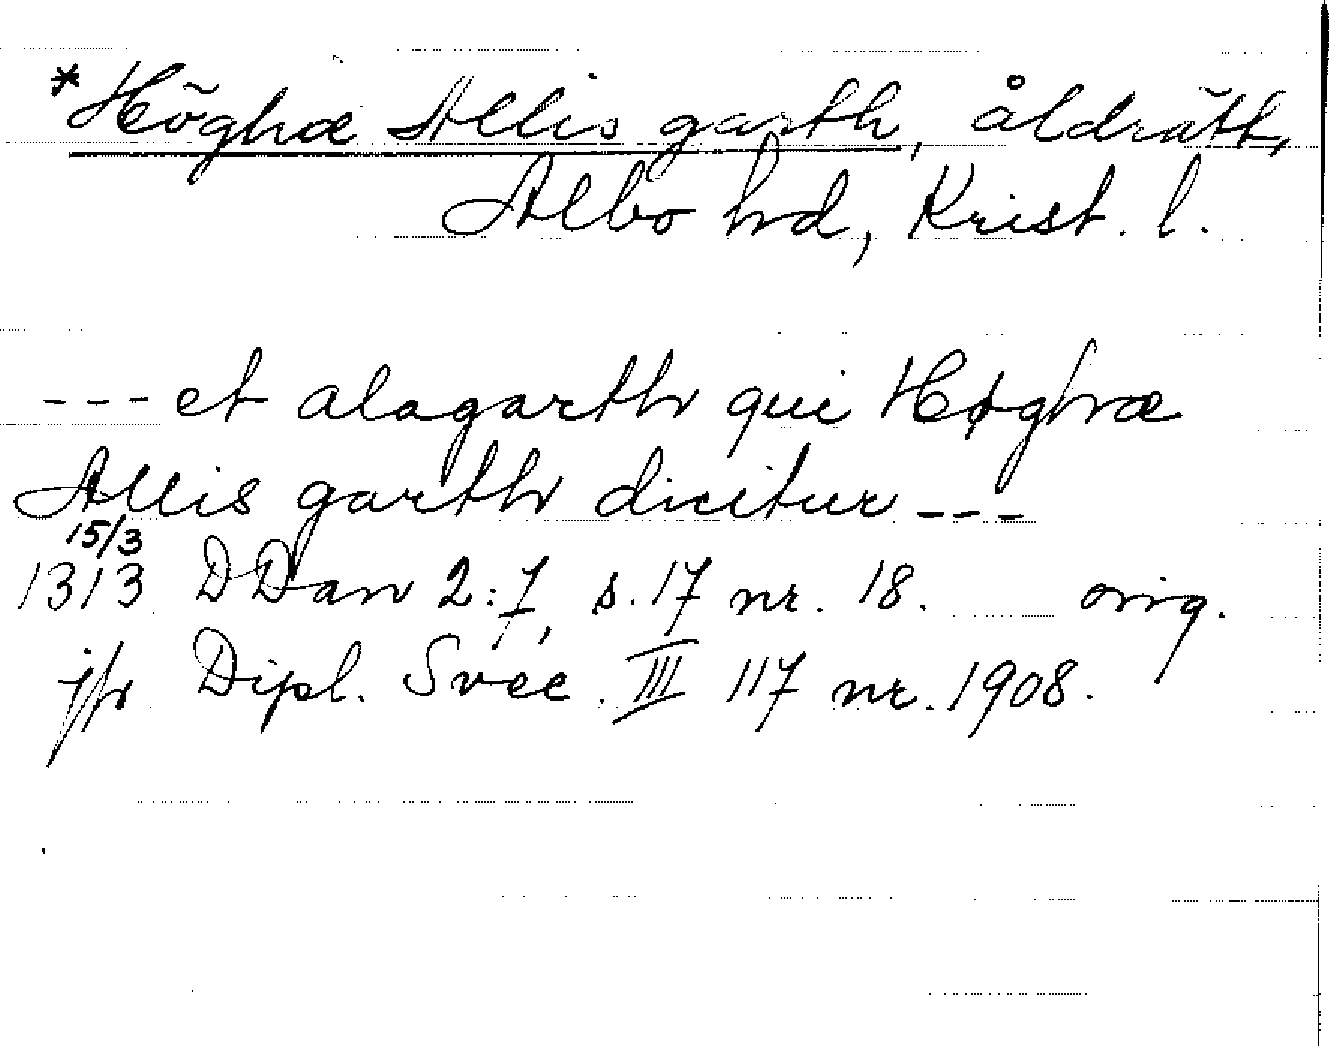 *Höghæ Allis garth, åldrätt,
Albo hd, Krist. l.
--- et alagarth qui Høghæ
Allis garth dicitur ---
15/3
1313 DDan 2:7, s. 17 nr. 18. orig.
jfr Dipl. Svec. III 117 nr. 1908.